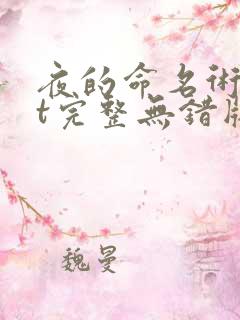 夜的命名術
t完整無錯
魏曼